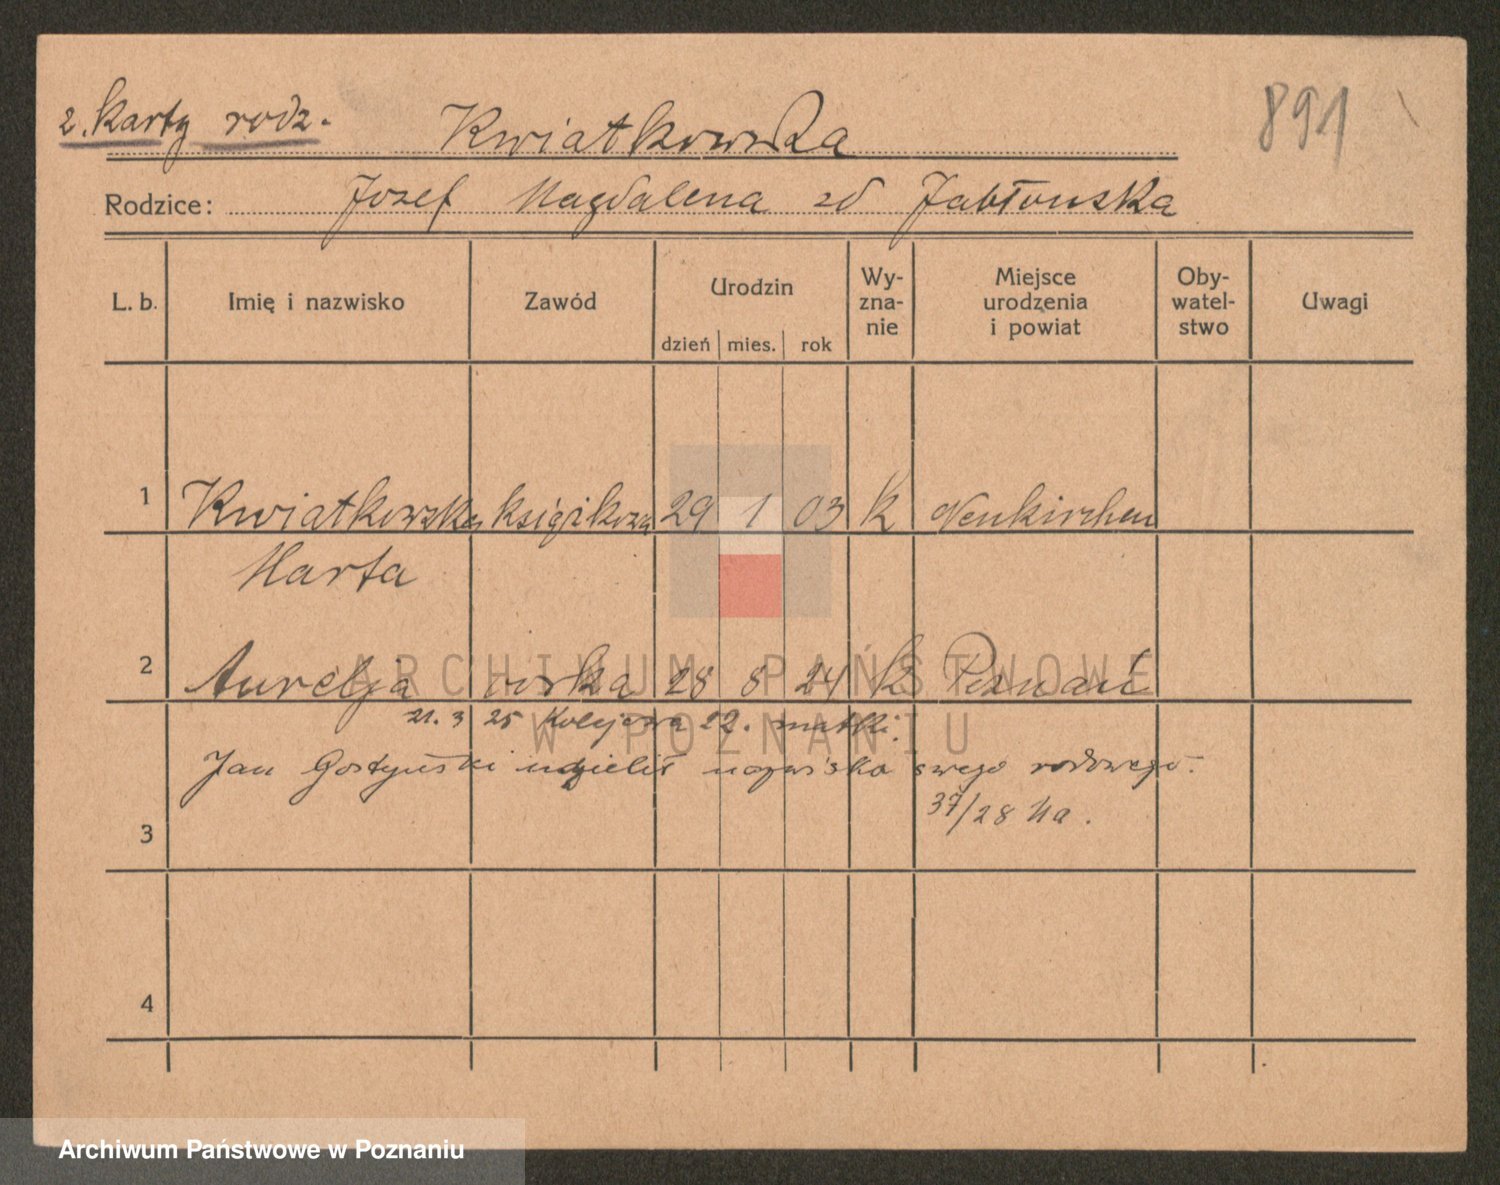 2. karty rodz. Kwiatkowska 891
Rodzice: Jozef Magdalena zd Jabłonska
L. b. Imię i nazwisko Zawód Urodzin dzień mies. rok Wy-zna-nie Miejsce urodzenia i powiat Oby-watel-stwo Uwagi
1 Kwiatkowska księgikowa 29 1 03 k Neukirchen
Marta
2 Aurelja córka 28 8 24 k Poznań
21. 3 25 Kolejowa 22. matki.
Jan Gostyński udzielił nazwiska swego rodowego.
37/28 Ma.
3
4
ARCHIWUM PAŃSTWOWE
W POZNANIU
Archiwum Państwowe w Poznaniu